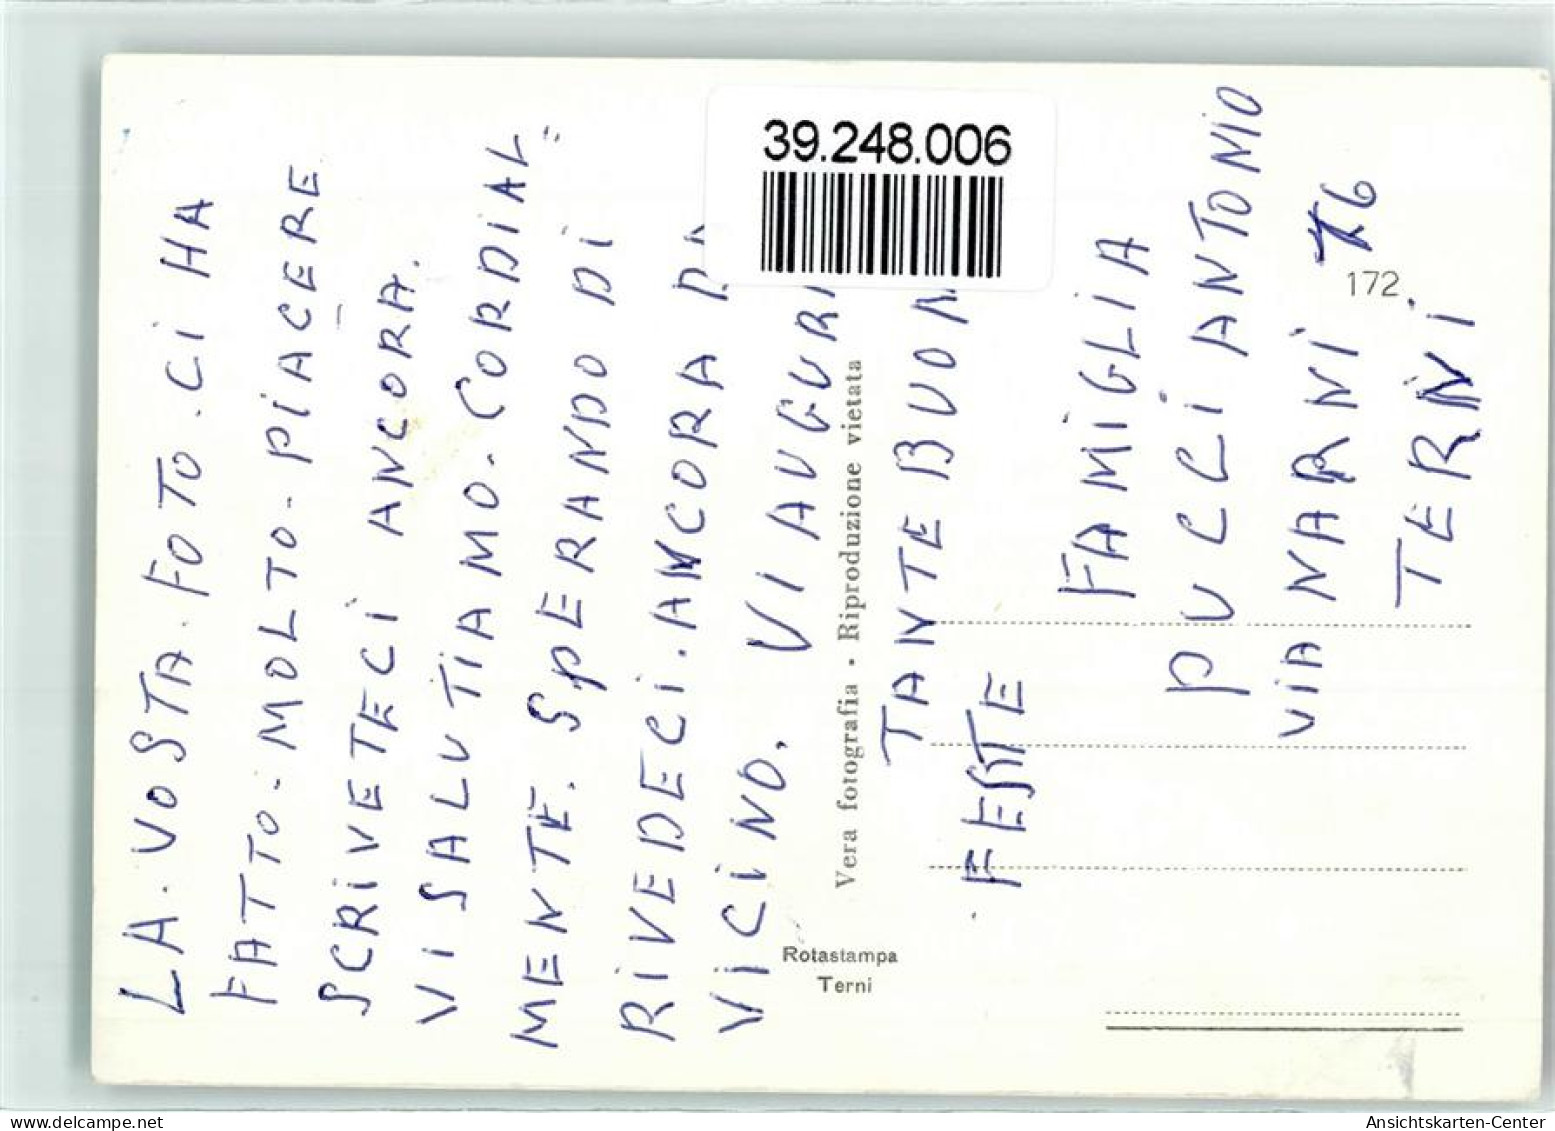 LA. VOSTA. FOTO. CI HA
FATTO. MOLTO. PIACERE
SCRIVETECI ANCORA.
VI SALUTIAMO. CORDIAL=
MENTE. SPERANDO DI
RIVEDECI. ANCORA
VICINO. VI AUGURI
TANTE BUON
FESTE
FAMIGLIA
PUCCI ANTONIO
VIA NARNI 76
TERNI
Vera fotografia · Riproduzione vietata
Rotastampa
Terni
172
39.248.006
delcampe.net
Ansichtskarten-Center